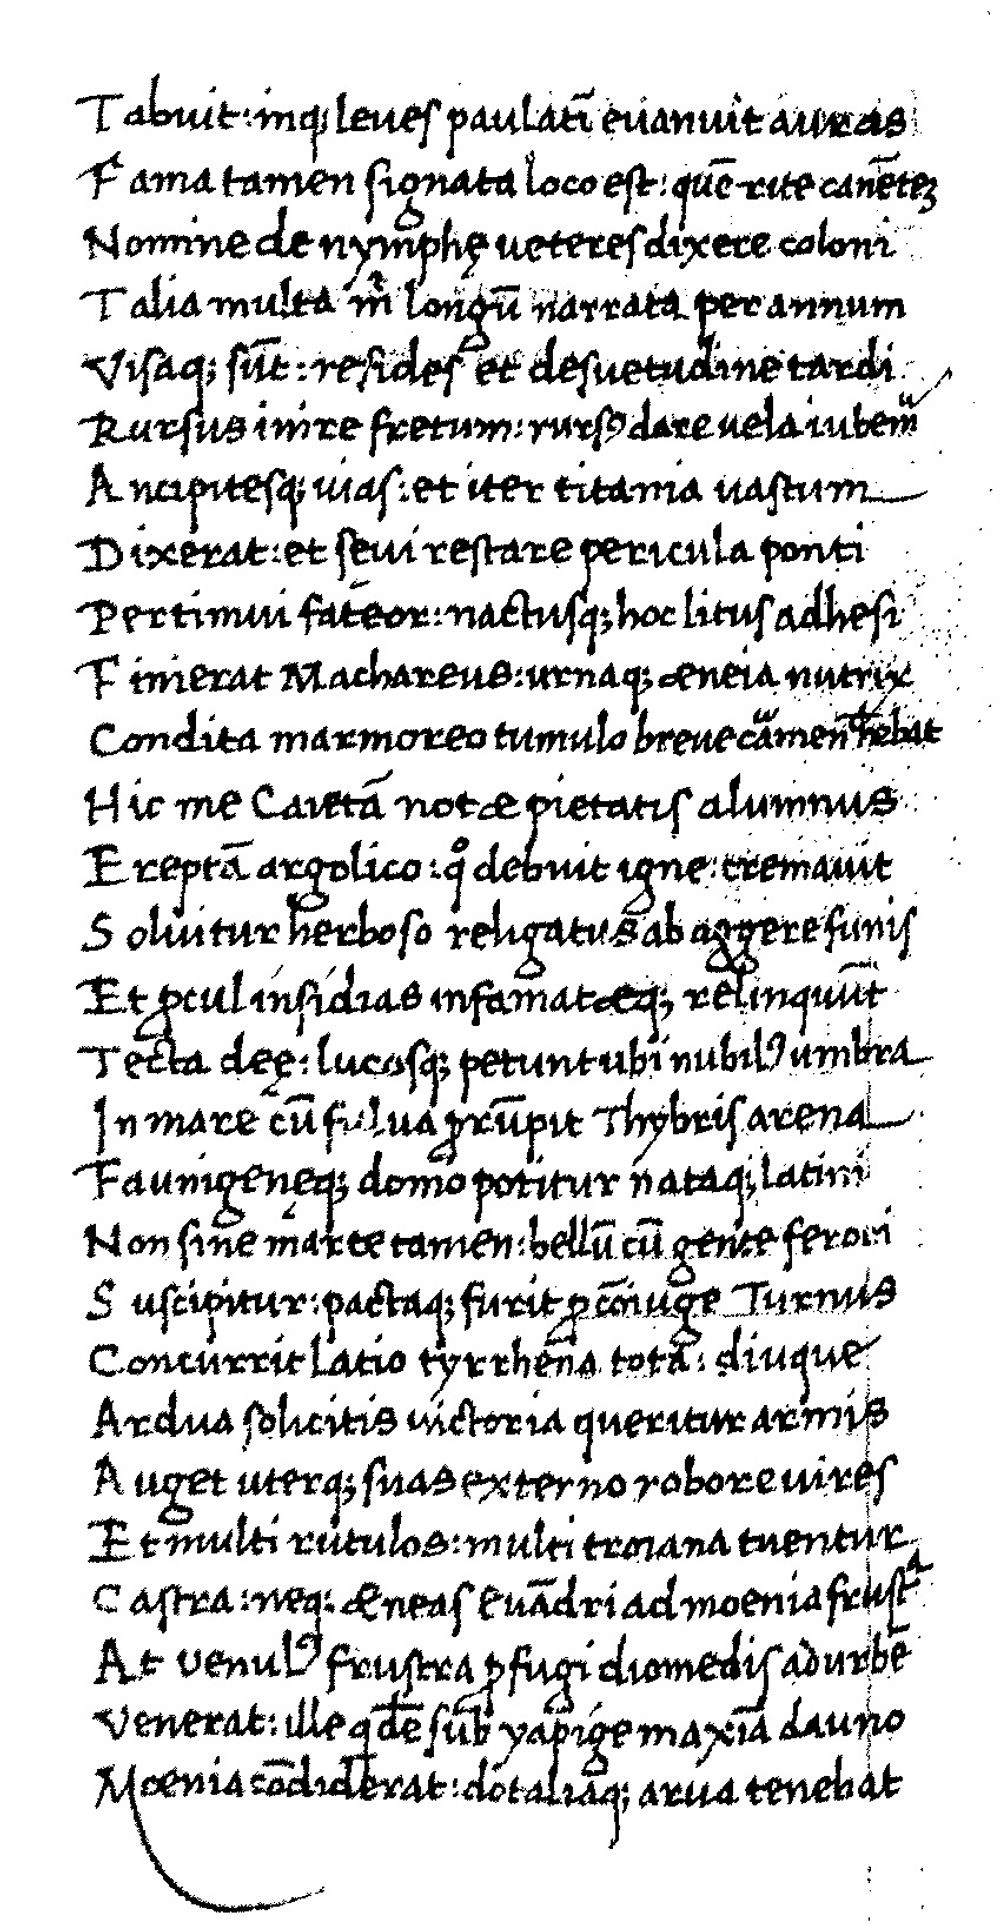 Tabuit: inq; leueſ paulatĩ euanuit auras
Fama tamen ſignata loco eſt: quẽ rite canẽteʒ
Nomine de nymphę ueteres dixere coloni
Talia multa m̃ longũ narrata per annum
Viſaq; ſũt: reſideſ et deſuetudine tardi
Rurſus inire fretum: rurſꝰ dare uela iubemͫ
Ancipiteſq; uiaſ: et iter titania uaſtum
Dixerat: et ſeui reſtare pericula ponti
Pertimui fateor: nactuſq; hoc lituſ adheſi
Finierat Machareus: urnaq; æneia nutrix
Condita marmoreo tumulo breue camen h̃ebat
Hic me Caietã notæ pietatiſ alumnus
Ereptã argolico: qͦ debuit igne: cremauit
Soluitur herboſo religatus ab aggere funiſ
Et ꝓcul inſidias infamatæq; relinquũt
Tecta deę: lucoſq; petunt ubi nubilꝰ umbra
In mare cũ fulua ꝓrũpit Thybriſ arena
Faunigenęq; domo potitur nataq; latini
Non ſine marte tamen: bellũ cũ gente feroci
Suſcipitur: pactaq; furit ꝓ cõiuge Turnus
Concurrit latio tyrrhena tota: diuque
Ardua ſolicitis uictoria queritur armis
Auget uterq; ſuas externo robore uireſ
Et multi rutulos: multi troiana tuentur
Caſtra: neq; æneaſ euãdri ad moenia fruſtᵃ
At uenulꝰ fruſtra ꝓfugi diomediſ ad urbẽ
Venerat: ille qdẽ ſub yapige maxiã dauno
Moenia cõdiderat: dotaliaq; arua tenebat